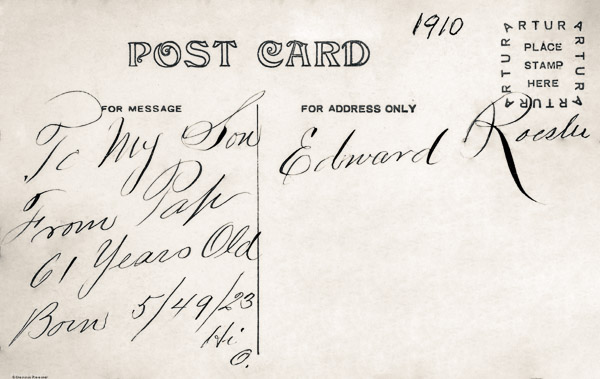 1910
POST CARD
ARTURA
ARTURA
ARTURA
ARTURA
PLACE
STAMP
HERE
FOR MESSAGE
FOR ADDRESS ONLY
To My Son
From Pap
61 Years Old
Born 5/49/23
Hi
O.
Edward Roesler